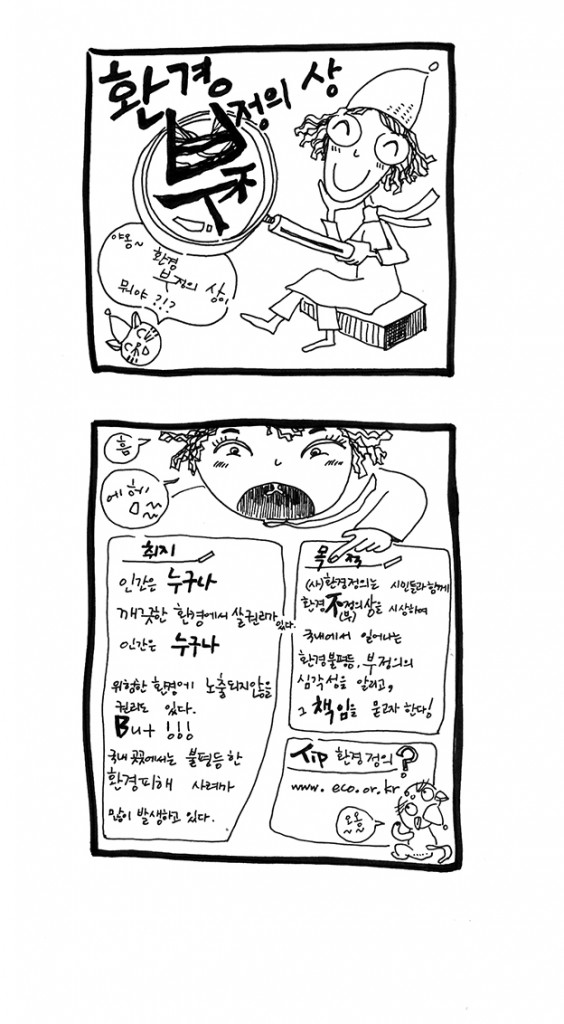 환경
부정의 상
不
야옹~ 환경
부정의 상이
뭐야?!?
흠
에헴
취지
인간은 누구나
깨끗한 환경에서 살권리가 있다.
인간은 누구나
위험한 환경에 노출되지않을
권리도 있다.
But !!!
국내 곳곳에서는 불평등한
환경피해 사례가
많이 발생하고 있다.
목적
(사)환경정의는 시민들과함께
환경不정의상을 시상하여
(부)
국내에서 일어나는
환경불평등, 부정의의
심각성을 알리고,
그 책임을 묻고자 한다!
Tip 환경정의?
www.eco.or.kr
오옹